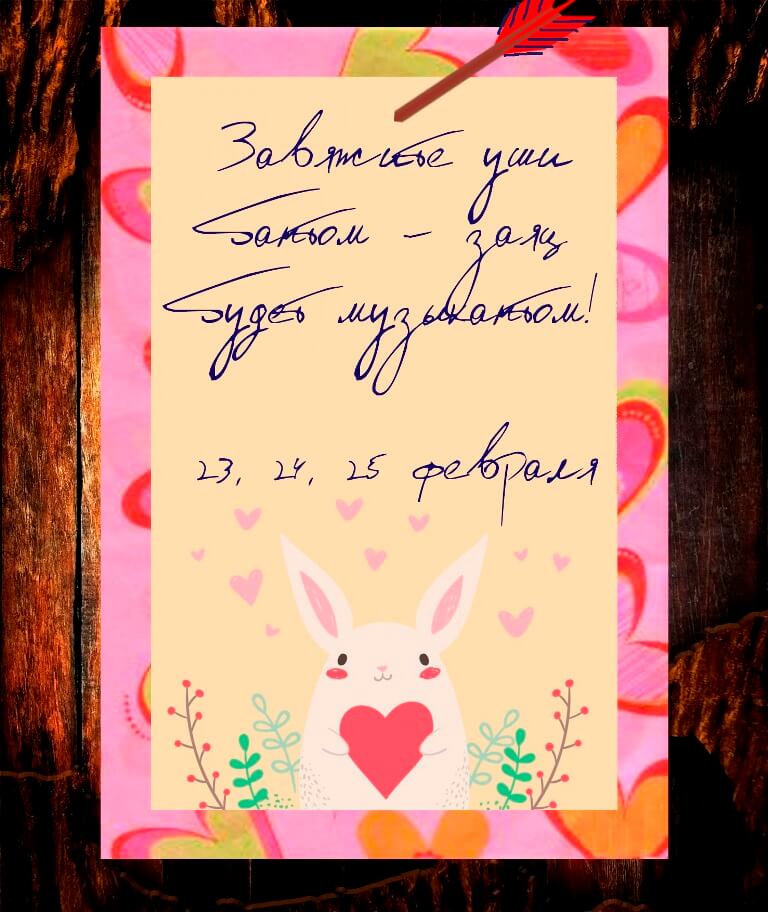 Завяжите уши
бантом - заяц
будет музыкантом!
23, 24, 25 февраля